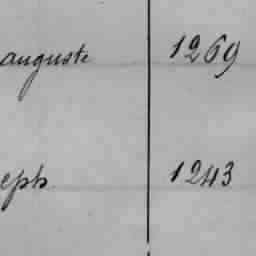 auguste 1269
eph 1243